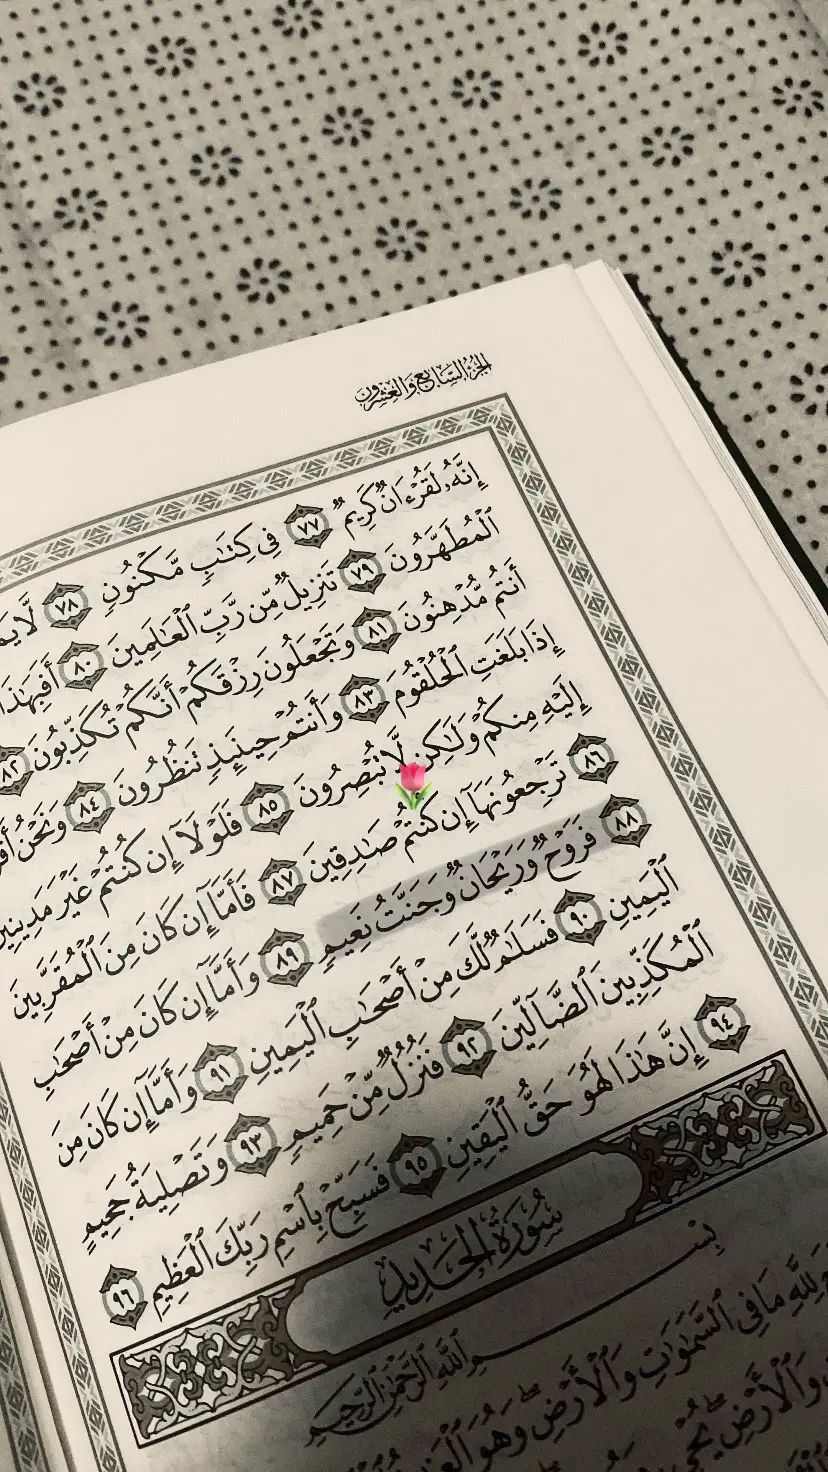 الجزء السابع والعشرون
إِنَّهُۥ لَقُرْءَانٌ كَرِيمٌ ٧٧ فِى كِتَٰبٍ مَّكْنُونٍ ٧٨ لَّا
ٱلْمُطَهَّرُونَ ٧٩ تَنزِيلٌ مِّن رَّبِّ ٱلْعَٰلَمِينَ ٨٠ أَفَبِهَٰذَا
أَنتُم مُّدْهِنُونَ ٨١ وَتَجْعَلُونَ رِزْقَكُمْ أَنَّكُمْ تُكَذِّبُونَ ٨٢
إِذَا بَلَغَتِ ٱلْحُلْقُومَ ٨٣ وَأَنتُمْ حِينَئِذٍ تَنظُرُونَ ٨٤ وَنَحْنُ
إِلَيْهِ مِنكُمْ وَلَٰكِن لَّا تُبْصِرُونَ ٨٥ فَلَوْلَآ إِن كُنتُمْ غَيْرَ مَدِينِينَ ٨٦
تَرْجِعُونَهَآ إِن كُنتُمْ صَٰدِقِينَ ٨٧ فَأَمَّآ إِن كَانَ مِنَ ٱلْمُقَرَّبِينَ ٨٨
فَرَوْحٌ وَرَيْحَانٌ وَجَنَّتُ نَعِيمٍ ٨٩ وَأَمَّآ إِن كَانَ مِنْ أَصْحَٰبِ
ٱلْيَمِينِ ٩٠ فَسَلَٰمٌ لَّكَ مِنْ أَصْحَٰبِ ٱلْيَمِينِ ٩١ وَأَمَّآ إِن كَانَ مِنَ
ٱلْمُكَذِّبِينَ ٱلضَّآلِّينَ ٩٢ فَنُزُلٌ مِّنْ حَمِيمٍ ٩٣ وَتَصْلِيَةُ جَحِيمٍ ٩٤
إِنَّ هَٰذَا لَهُوَ حَقُّ ٱلْيَقِينِ ٩٥ فَسَبِّحْ بِٱسْمِ رَبِّكَ ٱلْعَظِيمِ ٩٦
سُورَةُ الحَدِيدِ
بِسْمِ ٱللَّهِ ٱلرَّحْمَٰنِ ٱلرَّحِيمِ
لِلَّهِ مَا فِى ٱلسَّمَٰوَٰتِ وَٱلْأَرْضِ وَهُوَ
وَٱلْأَرْضِ